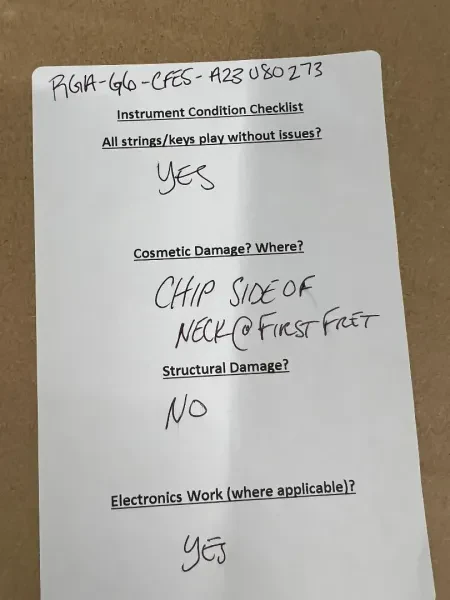 RGA-G6-CFES-A23080273
Instrument Condition Checklist
All strings/keys play without issues?
YES
Cosmetic Damage? Where?
CHIP SIDE OF
NECK @ FIRST FRET
Structural Damage?
NO
Electronics Work (where applicable)?
YES